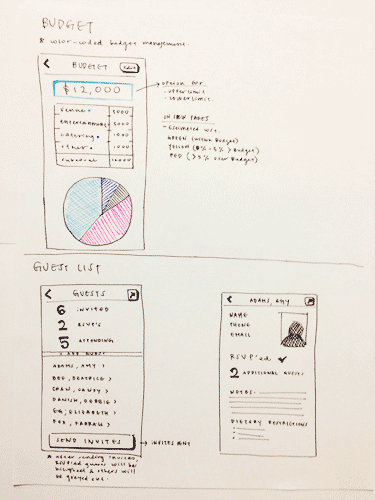 BUDGET
* color-coded budget management.
< BUDGET edit
$12,000
venue 5000
entertainment 3000
catering
other
subtotal
option for
- upper limit
- lower limit
ON SUB PAGES
- estimated vs.
GREEN (within budget)
YELLOW (0% - 5% > budget)
RED ( >5% over budget)
GUEST LIST
< GUESTS
6 INVITED
2 RSVP'S
5 ATTENDING
+ ADD GUEST
ADAMS, AMY >
BEE, BEATRICE >
CHEN, CANDY >
DANISH, DEBBIE >
EG, ELIZABETH >
FOX, FARRAH >
SEND INVITES
INVITES SENT
* when sending invites,
RSVP'ed guests will be
& others will
be grayed out.
< ADAMS, AMY
NAME
PHONE
EMAIL
RSVP'ed ✓
2 ADDITIONAL GUESTS
NOTES:
DIETARY RESTRICTIONS